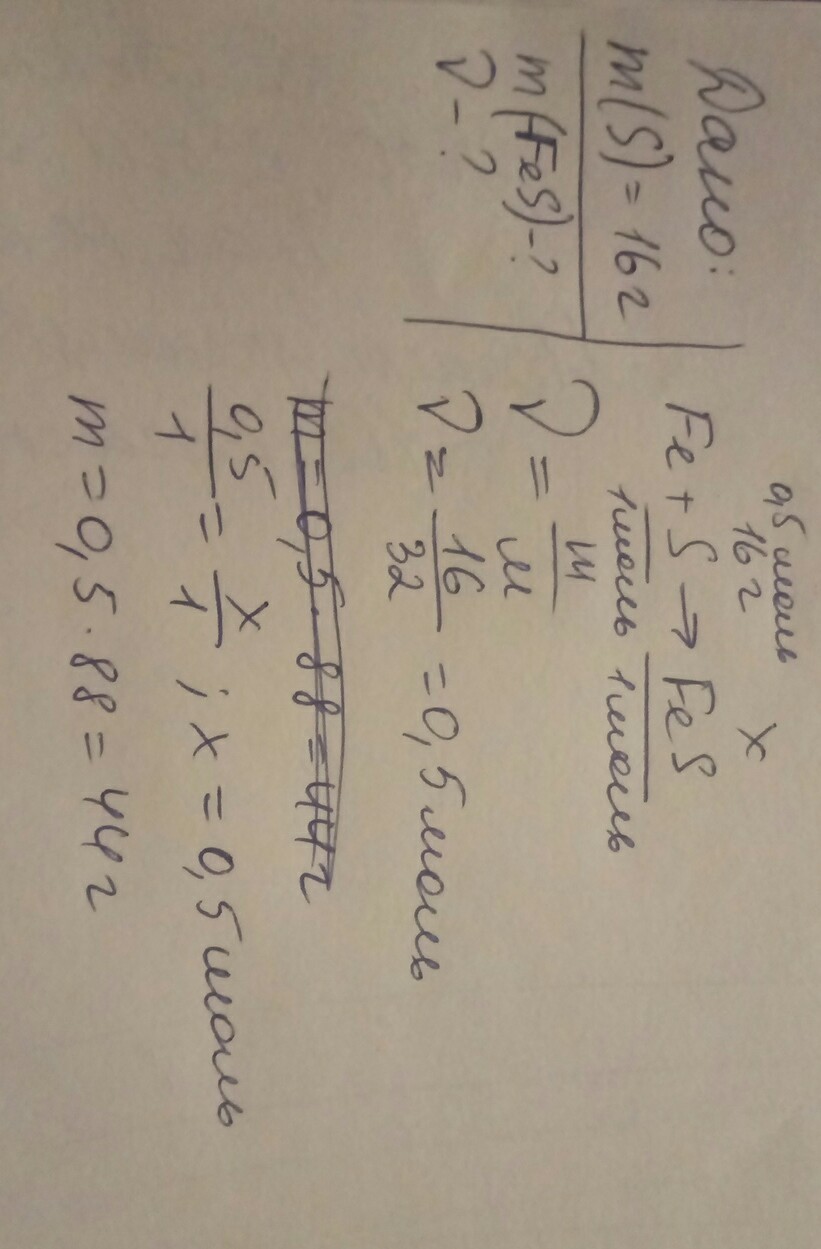 Дано:
m(S) = 16 г
m(FeS) - ?
ν - ?
0,5 моль
16 г x
Fe + S → FeS
1 моль 1 моль
ν = m/M
ν = 16/32 = 0,5 моль
m = 0,5 · 88 = 44 г
0,5/1 = x/1 ; x = 0,5 моль
m = 0,5 · 88 = 44 г